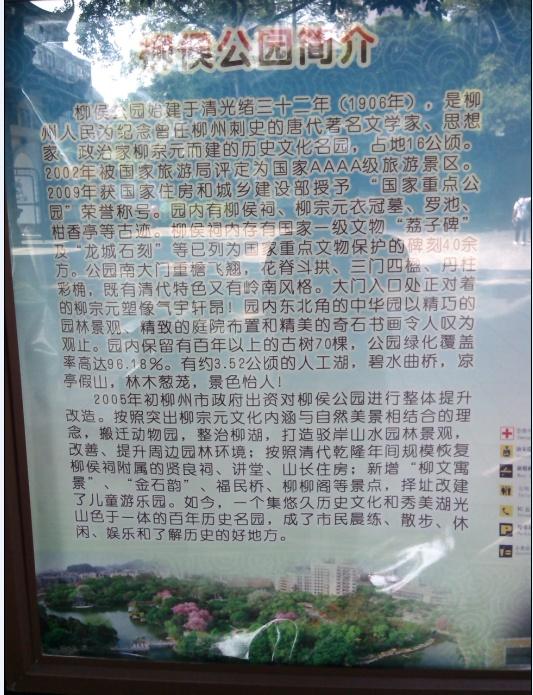 柳侯公园简介
柳侯公园始建于清光绪三十二年（1906年），是柳
州人民为纪念曾任柳州刺史的唐代著名文学家、思想
家、政治家柳宗元而建的历史文化名园，占地16公顷。
2002年被国家旅游局评定为国家AAAA级旅游景区。
2009年获国家住房和城乡建设部授予 “国家重点公
园”荣誉称号。园内有柳侯祠、柳宗元衣冠墓、罗池、
柑香亭等古迹。柳侯祠内存有国家一级文物“荔子碑”
及“龙城石刻”等已列为国家重点文物保护的碑刻40余
方。公园南大门重檐飞翘，花脊斗拱、三门四楹、丹柱
彩桷，既有清代特色又有岭南风格。大门入口处正对着
的柳宗元塑像气宇轩昂！园内东北角的中华园以精巧的
园林景观、精致的庭院布置和精美的奇石书画令人叹为
观止。园内保留有百年以上的古树70棵，公园绿化覆盖
率高达96.18%。有约3.52公顷的人工湖，碧水曲桥，凉
亭假山，林木葱茏，景色怡人！
2005年初柳州市政府出资对柳侯公园进行整体提升
改造。按照突出柳宗元文化内涵与自然美景相结合的理
念，搬迁动物园，整治柳湖，打造驳岸山水园林景观，
改善、提升周边园林环境；按照清代乾隆年间规模恢复
柳侯祠附属的贤良祠、讲堂、山长住房；新增“柳文寓
景”、“金石韵”、福民桥、柳柳阁等景点，择址改建
了儿童游乐园。如今，一个集悠久历史文化和秀美湖光
山色于一体的百年历史名园，成了市民晨练、散步、休
闲、娱乐和了解历史的好地方。
P